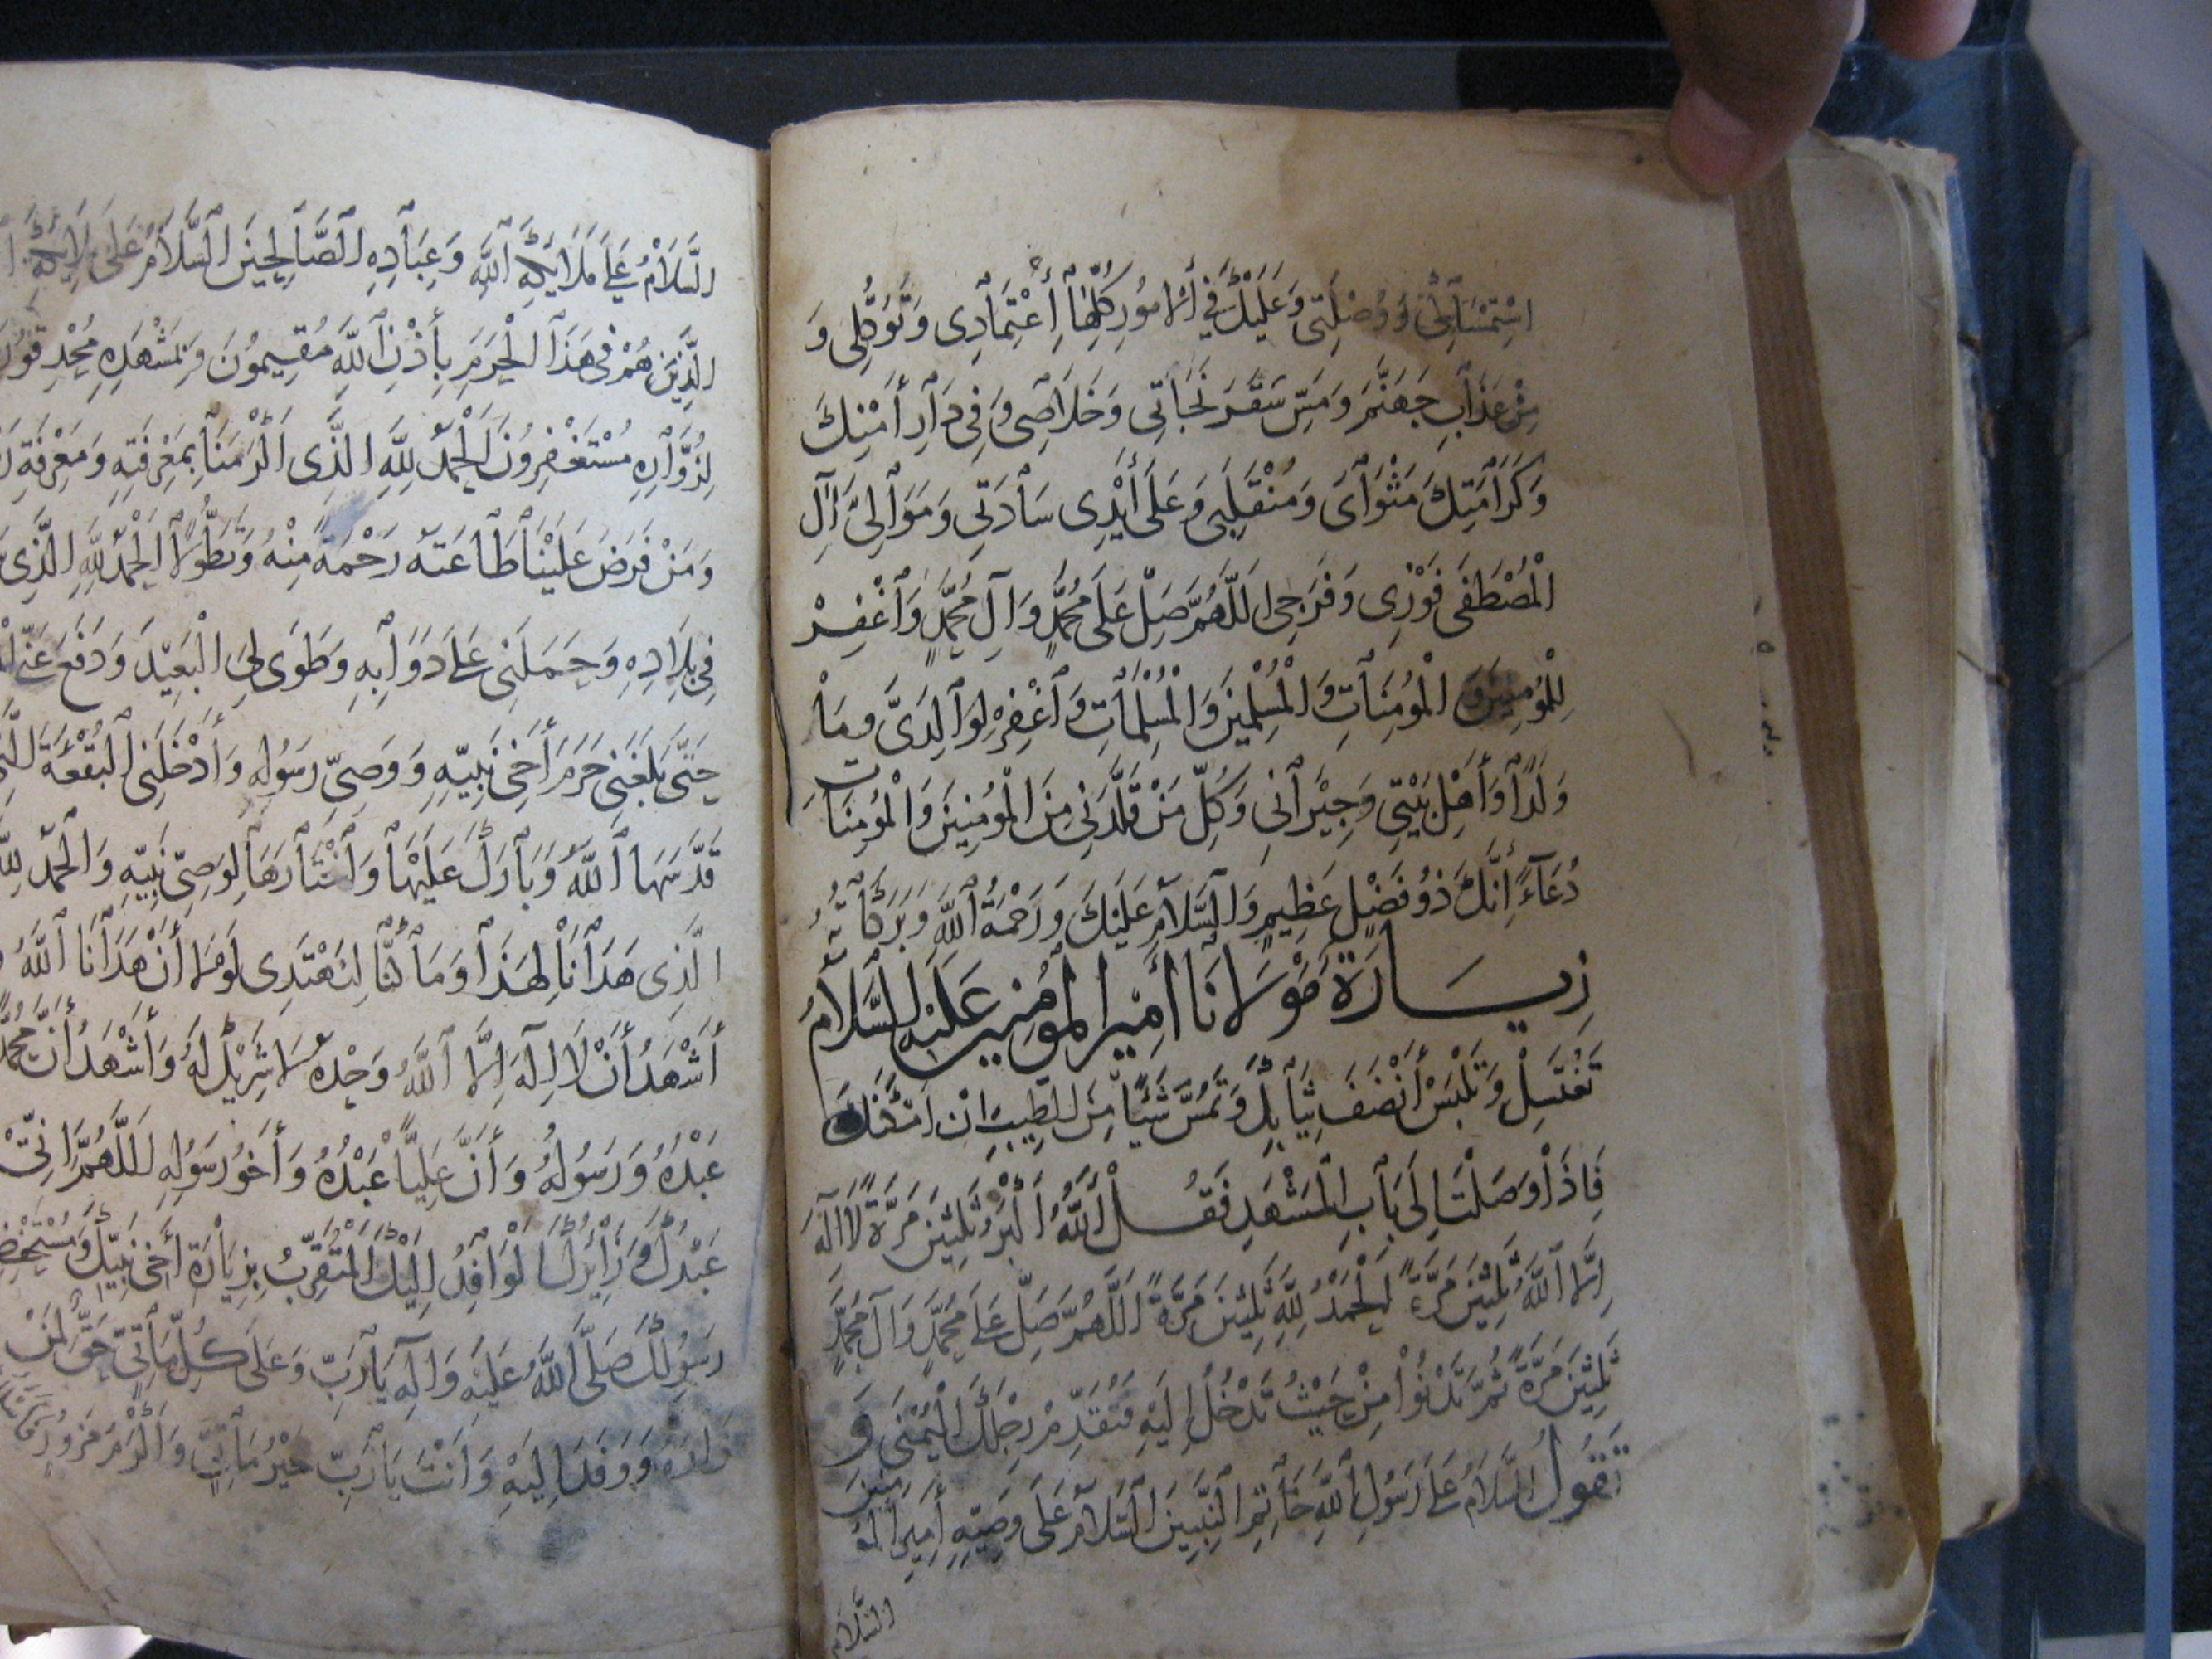 اسْتِمْسَاكِي وَوُصْلَتِي وَعَلَيْكَ فِي الأُمُورِ كُلِّهَا اعْتِمَادِي وَتَوَكُّلِي وَ
مِنْ عَذَابِ جَهَنَّمَ وَمَسِّ سَقَرَ نَجَاتِي وَخَلَاصِي وَفِي دَارِ أَمْنِكَ
وَكَرَامَتِكَ مَثْوَايَ وَمُنْقَلَبِي وَعَلَى أَيْدِي سَادَتِي وَمَوَالِيَّ آلِ
الْمُصْطَفَى فَوْزِي وَفَرَجِي اللَّهُمَّ صَلِّ عَلَى مُحَمَّدٍ وَآلِ مُحَمَّدٍ وَاغْفِرْ
لِلْمُؤْمِنِينَ وَالْمُؤْمِنَاتِ وَالْمُسْلِمِينَ وَالْمُسْلِمَاتِ وَاغْفِرْ لِوَالِدَيَّ وَمَا
وَلَدَا وَأَهْلِ بَيْتِي وَجِيْرَانِي وَكُلِّ مَنْ قَلَّدَنِي مِنَ الْمُؤْمِنِينَ وَالْمُؤْمِنَاتِ
دُعَاءً إِنَّكَ ذُو فَضْلٍ عَظِيمٍ وَالسَّلَامُ عَلَيْكَ وَرَحْمَةُ اللَّهِ وَبَرَكَاتُهُ
زِيَارَةُ مَوْلَانَا أَمِيْرِ الْمُؤْمِنِينَ عَلَيْهِ السَّلَامُ
تَغْتَسِلْ وَتَلْبَسْ أَنْضَفَ ثِيَابِكَ وَتَمُسَّ شَيْئًا مِنَ الطِّيبِ إِنْ أَمْكَنَكَ
فَإِذَا وَصَلْتَ إِلَى بَابِ الْمَشْهَدِ فَقُلْ اللَّهُ أَكْبَرُ ثَلِثِينَ مَرَّةً لَا إِلَهَ
إِلَّا اللَّهُ ثَلِثِينَ مَرَّةً الْحَمْدُ لِلَّهِ ثَلِثِينَ مَرَّةً اللَّهُمَّ صَلِّ عَلَى مُحَمَّدٍ وَآلِ مُحَمَّدٍ
ثَلِثِينَ مَرَّةً ثُمَّ تَدْنُوا مِنْ حَيْثُ تَدْخُلُ إِلَيْهِ فَتُقَدِّمْ رِجْلَكَ الْيُمْنَى وَ
تَقُولُ السَّلَامُ عَلَى رَسُولِ اللَّهِ خَاتِمِ النَّبِيِّينَ السَّلَامُ عَلَى وَصِيِّهِ أَمِيرِ الْمُؤْمِنِينَ
السَّلَامُ
السَّلَامُ عَلَى مَلَائِكَةِ اللَّهِ وَعِبَادِهِ الصَّالِحِينَ السَّلَامُ عَلَى مَلَائِكَةِ
الَّذِينَ هُمْ فِي هَذَا الْحَرَمِ بِأُذْنِ اللَّهِ مُقِيمُونَ وَبِمَشْهَدِهِ مُحْدِقُونَ
لِزُوَّارِهِ مُسْتَغْفِرُونَ الْحَمْدُ لِلَّهِ الَّذِي أَكْرَمَنَا بِمَعْرِفَتِهِ وَمَعْرِفَةِ
وَمَنْ فَرَضَ عَلَيْنَا طَاعَتَهُ رَحْمَةً مِنْهُ وَتَطَوُّلًا الْحَمْدُ لِلَّهِ الَّذِي
فِي بِلَادِهِ وَحَمَلَنِي عَلَى دَوَابِّهِ وَطَوَى لِيَ الْبَعِيْدَ وَدَفَعَ عَنِّي
حَتَّى بَلَغَنِي حَرَمَ أَخِي نَبِيِّهِ وَوَصِيِّ رَسُولِهِ وَأَدْخَلَنِي الْبُقْعَةَ الَّتِي
قَدَّسَهَا اللَّهُ وَبَارَكَ عَلَيْهَا وَاخْتَارَهَا لِوَصِيِّ نَبِيِّهِ وَالْحَمْدُ لِلَّهِ
الَّذِي هَدَانَا لِهَذَا وَمَا كُنَّا لِنَهْتَدِي لَوْلَا أَنْ هَدَانَا اللَّهُ
أَشْهَدُ أَنْ لَا إِلَهَ إِلَّا اللَّهُ وَحْدَهُ لَا شَرِيْكَ لَهُ وَأَشْهَدُ أَنَّ مُحَمَّدًا
عَبْدُهُ وَرَسُولُهُ وَأَنَّ عَلِيًّا عَبْدُهُ وَأَخُو رَسُولِهِ اللَّهُمَّ إِنِّي
عَبْدُكَ وَزَائِرُكَ الْوَافِدُ إِلَيْكَ الْمُتَقَرِّبُ بِزِيَارَةِ أَخِي نَبِيِّكَ وَمُسْتَحْفَظِ
رَسُولِكَ صَلَّى اللَّهُ عَلَيْهِ وَآلِهِ يَا رَبِّ وَعَلَى كُلِّ مَأْتِيٍّ حَقٌّ لِمَنْ
زَارَهُ وَوَفَدَ إِلَيْهِ وَأَنْتَ يَا رَبِّ خَيْرُ مَأْتِيٍّ وَأَكْرَمُ مَزُورٍ